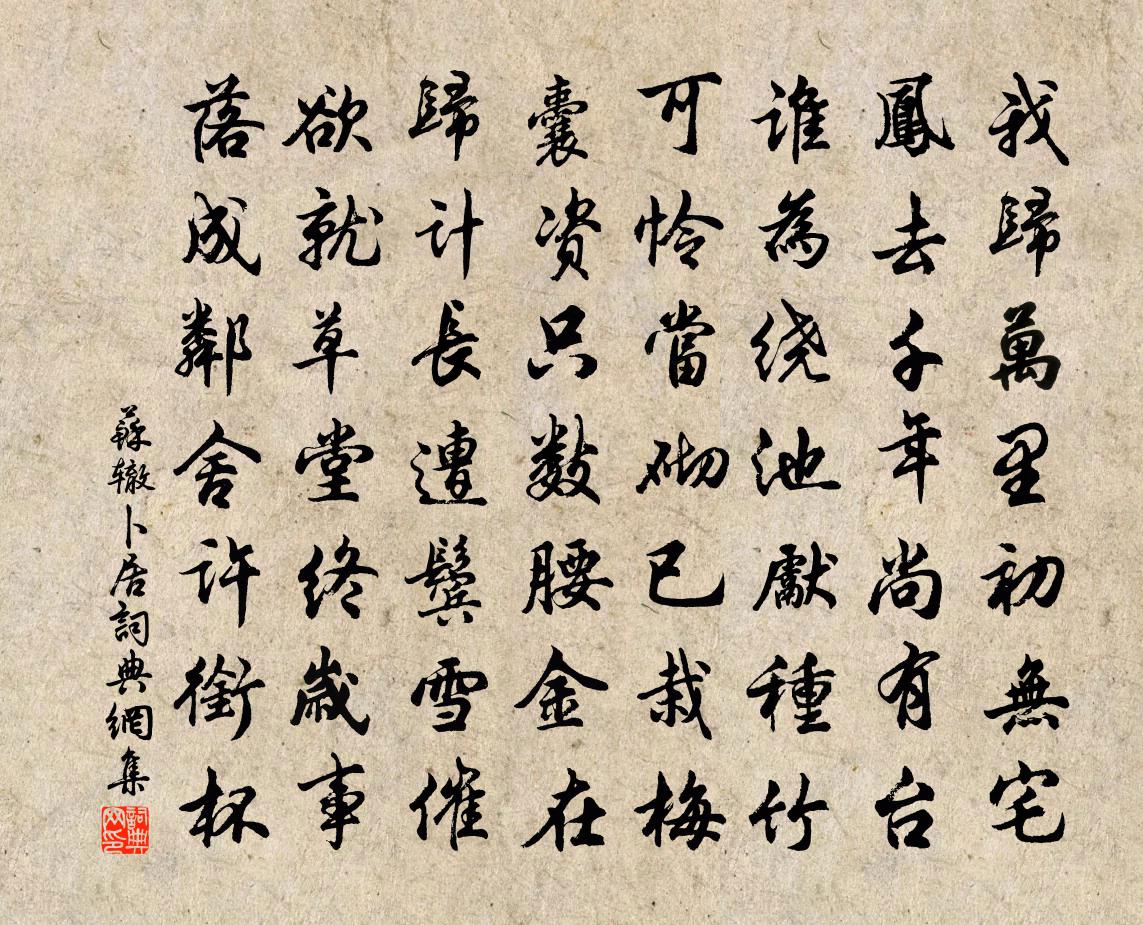 我歸萬里初無宅
鳳去千年尚有台
誰為绕池獻種竹
可怜當砌已栽梅
囊资只數腰金在
歸計長遭鬓雪催
欲就草堂终歲事
落成鄰舍許銜杯
蘇辙卜居詞典網集
詞典网印